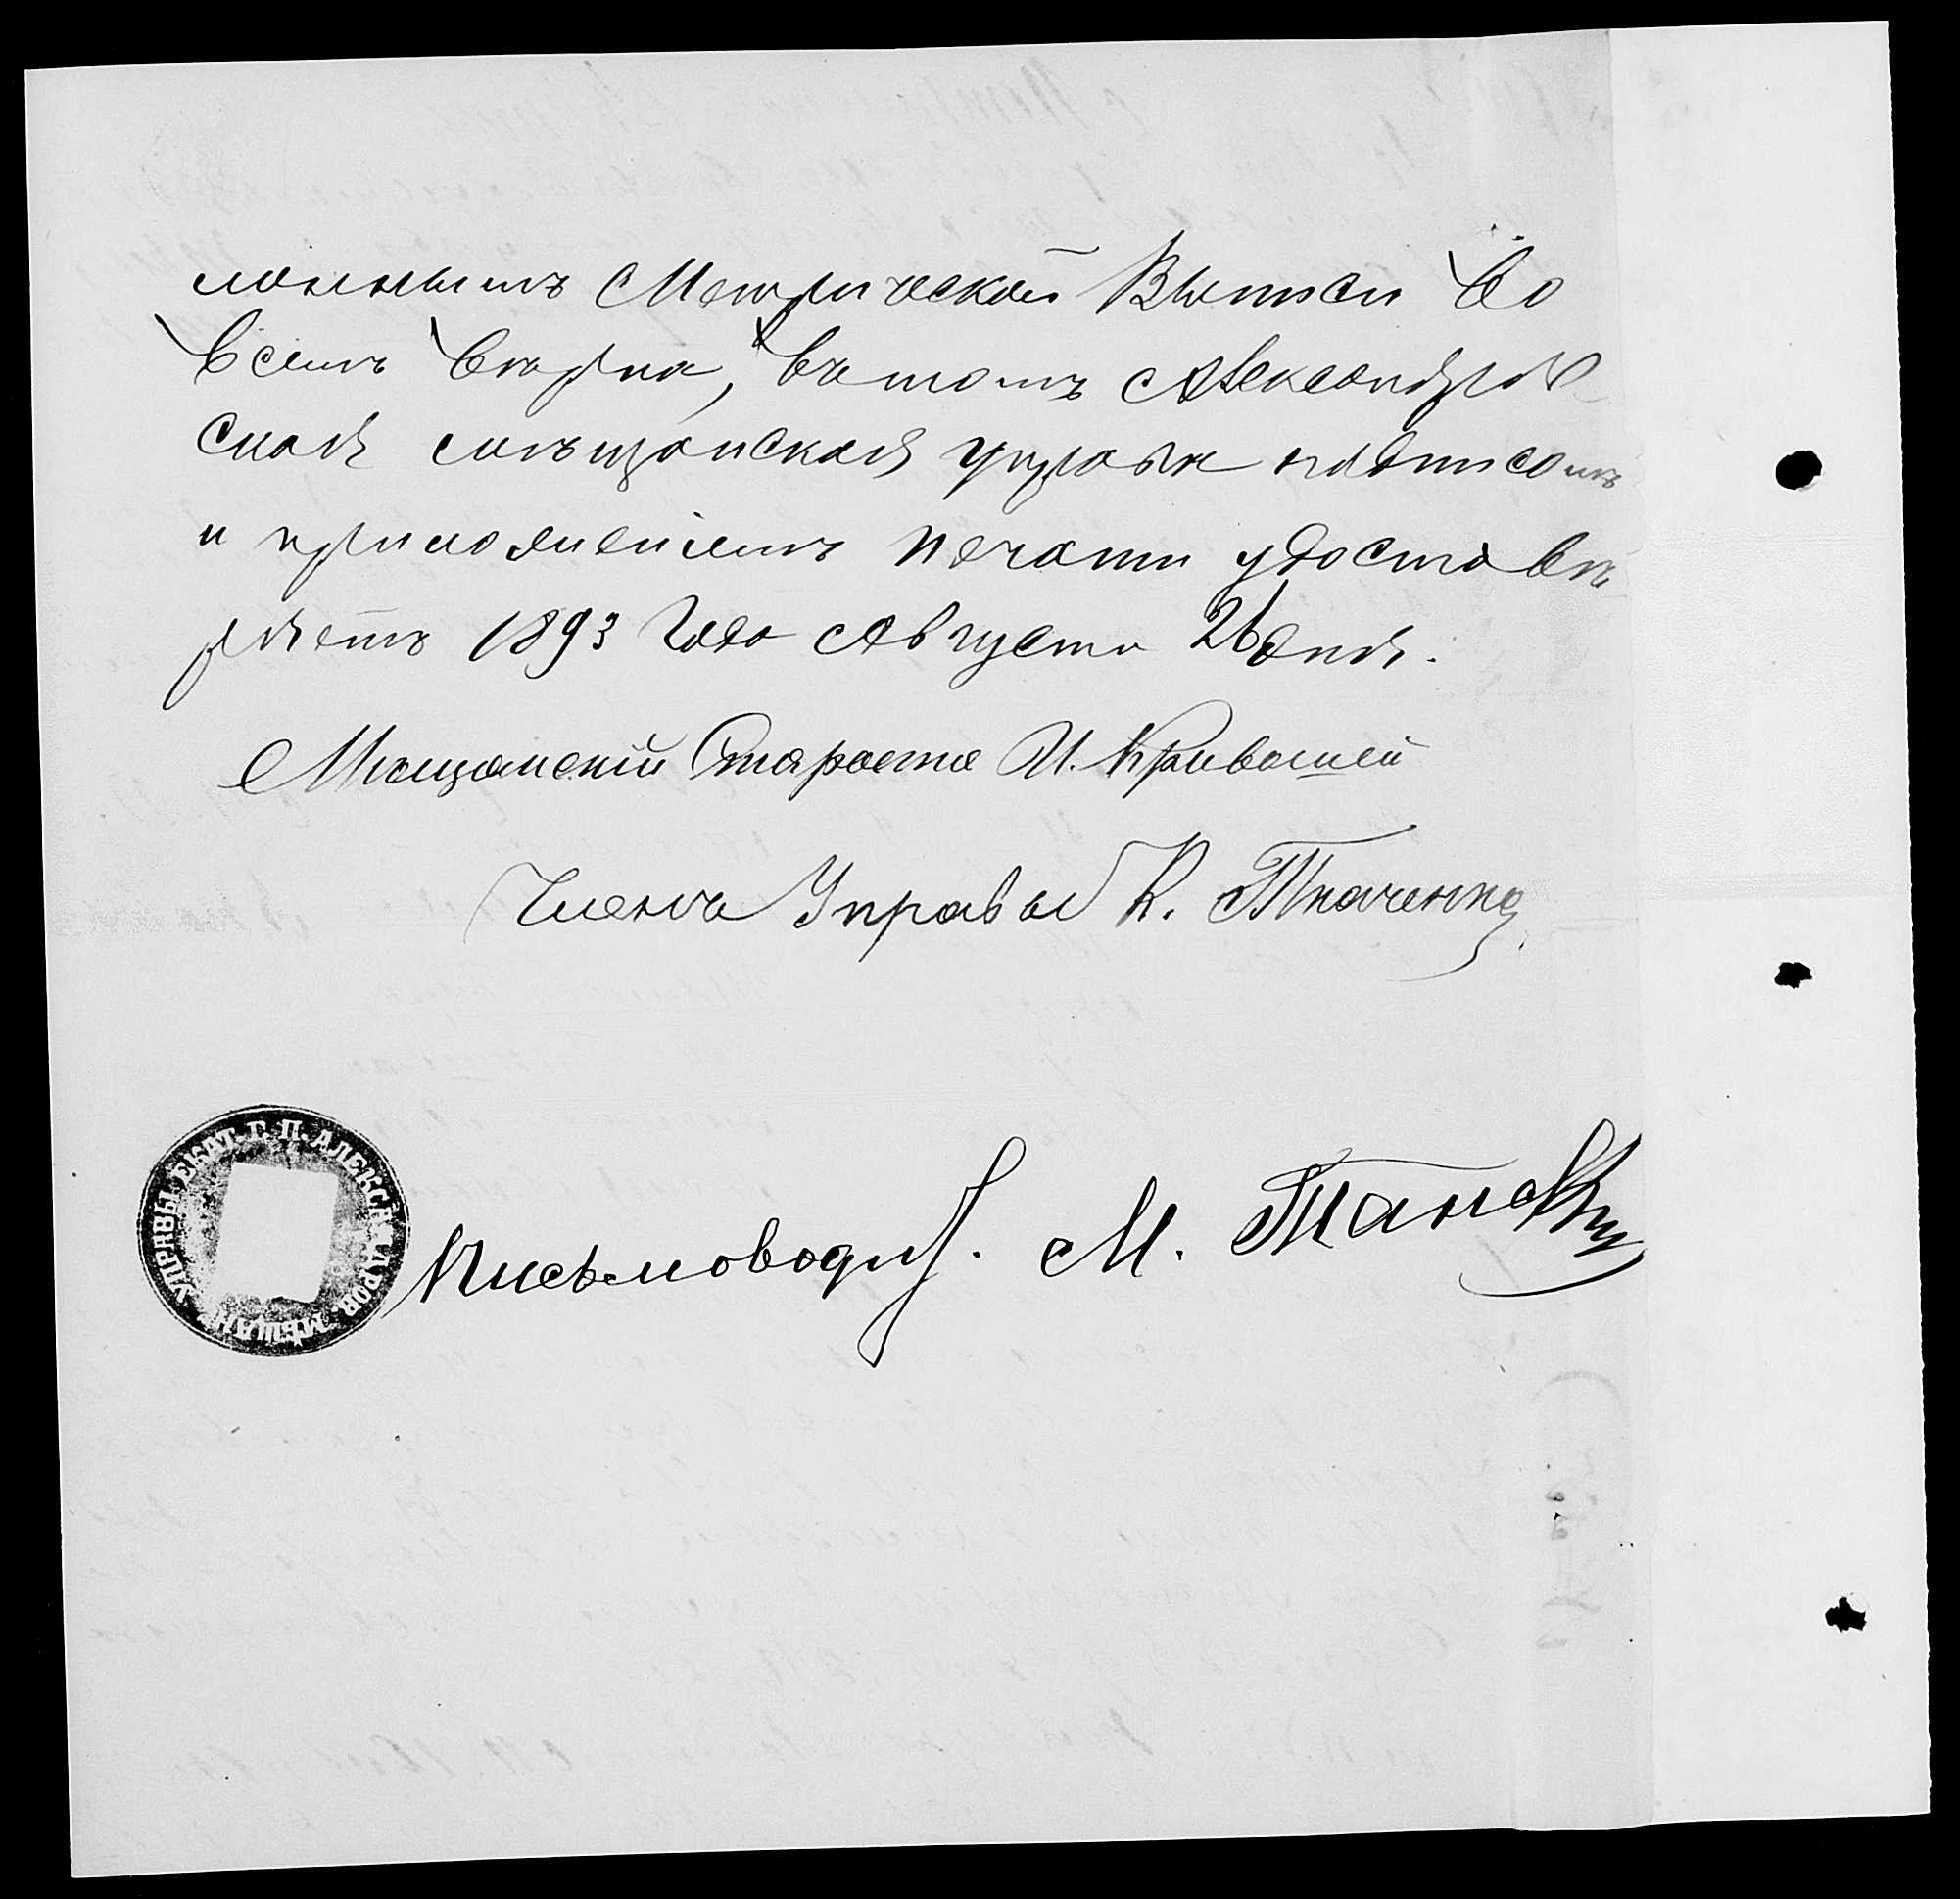 линнымъ Метрической Выписи во
всемъ вѣрна, въ томъ Александров-
ская мѣщанская управа подписомъ
и приложеніемъ печати удостовѣ
ряетъ 1893 года Августа 26 дня.
Мѣщанскій Староста И. Кривошей
Члены Управы К. Ткаченко
УПРАВЫ ЕКАТ. Г. П. АЛЕКСАНДРОВ. МѢЩАН.
Письмоводит. М.